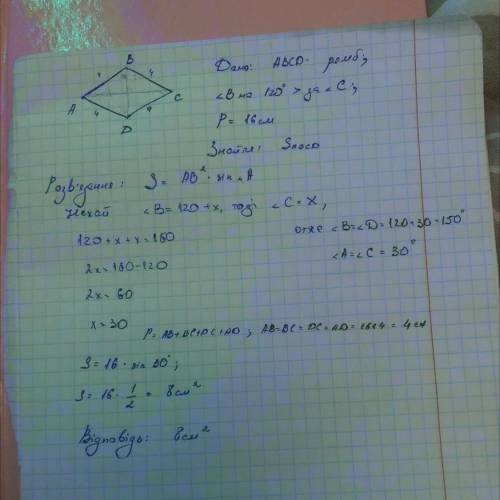 B
A
C
D
4 4
4 4
Дано: ABCD - ромб;
∠B на 120° > за ∠C;
P = 16 см
Знайти: Sромб
Розв'язання: S = AB² · sin ∠A
Нехай ∠B = 120 + x, тоді ∠C = x,
120 + x + x = 180
2x = 180 - 120
2x = 60
x = 30
отже ∠B = ∠D = 120 + 30 = 150°
∠A = ∠C = 30°
P = AB + BC + DC + AD; AB = BC = DC = AD = 16:4 = 4 см
S = 16 · sin 30°;
S = 16 · 1/2 = 8 см²
Відповідь: 8 см²